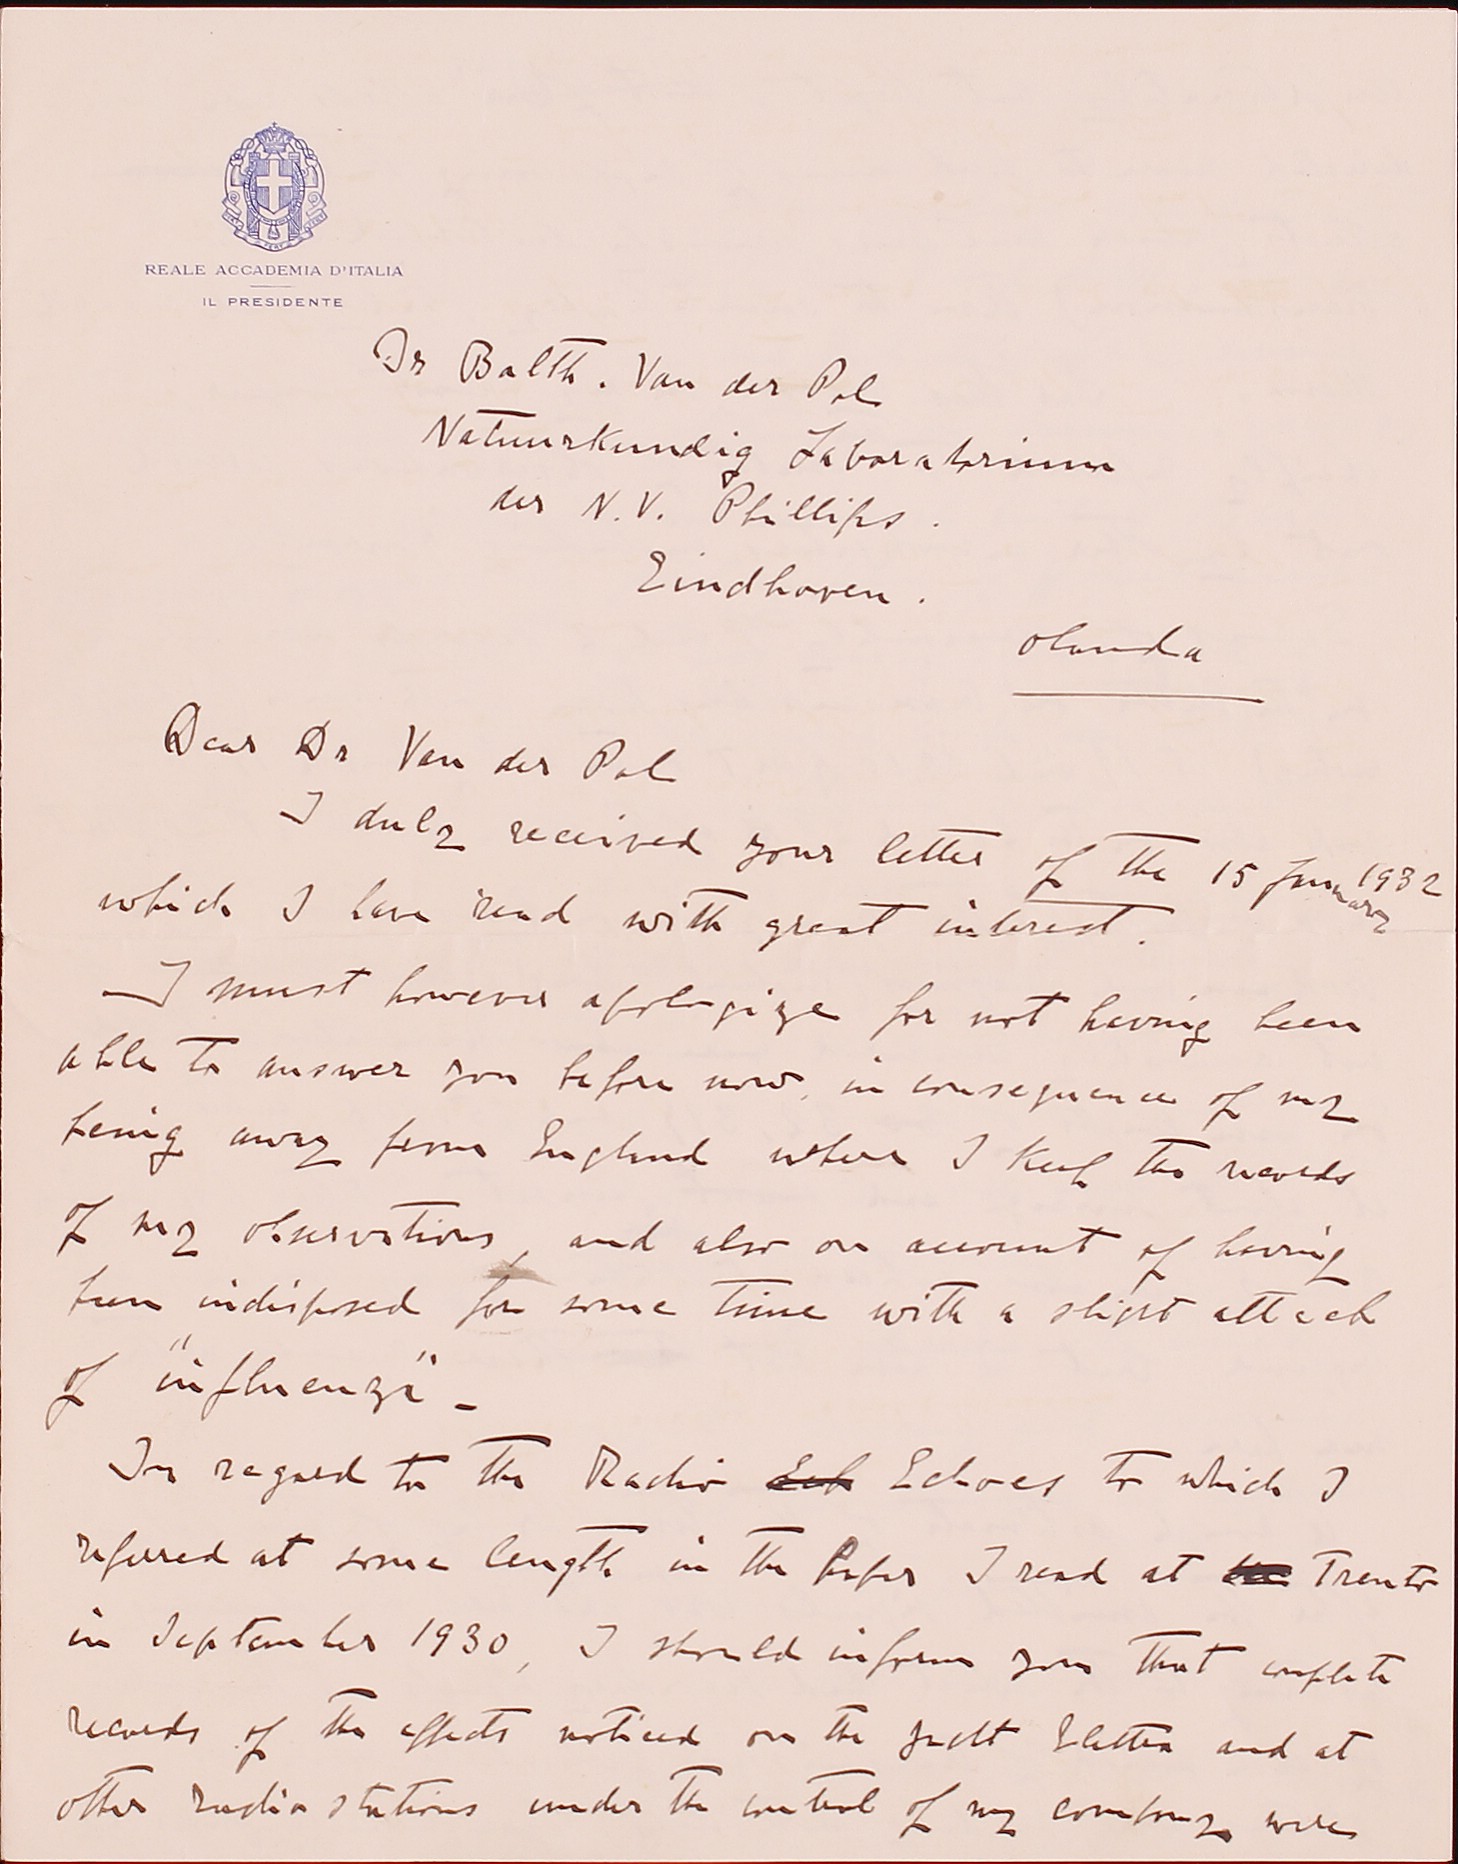 REALE ACCADEMIA D'ITALIA
IL PRESIDENTE
Dr Balth. Van der Pol
Natuurkundig Laboratorium
der N.V. Phillips.
Eindhoven.
Olanda
Dear Dr Van der Pol
I duly received your letter of the 15 January 1932
which I have read with great interest.
I must however apologize for not having been
able to answer you before now, in consequence of my
being away from England where I keep the records
of my observations, and also on account of having
been indisposed for some time with a slight attack
of "influenza" -
In regard to the Radio Ech Echoes to which I
referred at some length in the paper I read at Trento
in September 1930, I should inform you that complete
records of the effects noticed on the yacht Elettra and at
other radio stations under the control of my company were